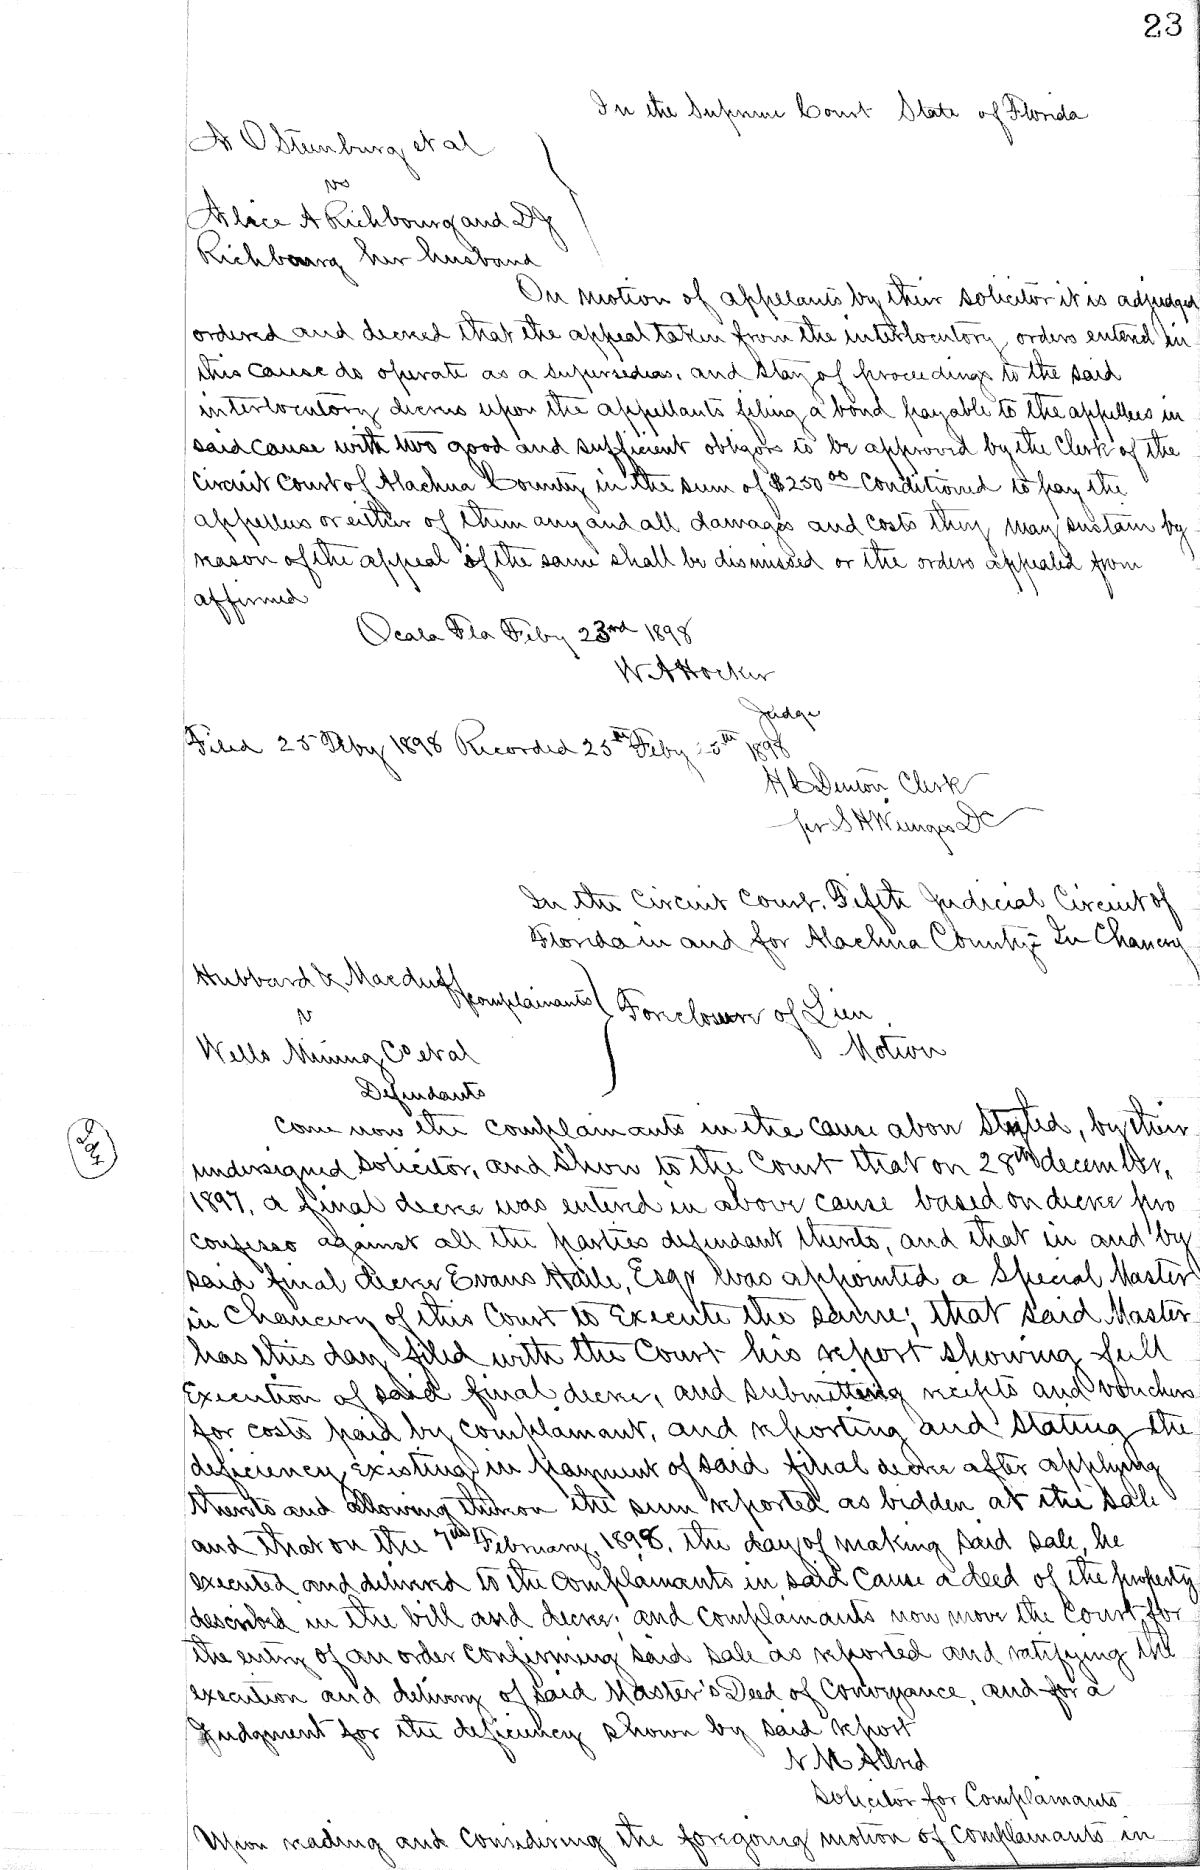 23
In the Supreme Court State of Florida
A O Steenburg et al
vs
Alice A Richbourg and D J
Richbourg her husband
On motion of appelants by their solicitor it is adjudged
ordered and decreed that the appeal taken from the interlocutory orders entered in
this cause do operate as a supersedeas, and stay of proceedings to the said
interlocutory decrees upon the appellants filing a bond payable to the appellees in
said cause with two good and sufficient obligors to be approved by the Clerk of the
Circuit Court of Alachua County in the sum of $250 00 conditioned to pay the
appellees or either of them any and all damages and costs they may sustain by
reason of the appeal if the same shall be dismissed or the orders appealed from
affirmed
Ocala Fla Feby 23rd 1898
W A Hocker
Judge
Filed 25 Feby 1898 Recorded 25th Feby 25th 1898
H C Denton Clerk
per S H Wienges DC
In the Circuit Court, Fifth Judicial Circuit of
Florida in and for Alachua County - In Chancery
Hubbard & Macduff complainants
v
Foreclosure of Lien
Wells Mining Co et al
Motion
Defendants
Come now the complainants in the cause above Styled, by their
undersigned solicitor, and show to the Court that on 28th december,
1897, a final decree was entered in above cause based on decree pro
confesso against all the parties defendant thereto, and that in and by
said final decree Evans Haile, Esqr was appointed a Special Master
in Chancery of this Court to Execute the same; that said Master
has this day filed with the Court his report showing full
Execution of said final decree, and submitting reciepts and vouchers
for costs paid by complainant, and reporting and stating the
deficiency existing in payment of said final decree after applying
thereto and allowing thereon the sum reported as bidden at the sale
and that on the 7th February, 1898, the day of making said sale, he
executed and delivered to the complainants in said cause a deed of the property
described in the bill and decree; and complainants now move the Court for
the entry of an order confirming said sale as reported and ratifying the
execution and delivery of said Master's Deed of Conveyance, and for a
Judgment for the deficiency shown by said report
N M Allred
Solicitor for Complainants
Upon reading and considering the foregoing motion of complainants in